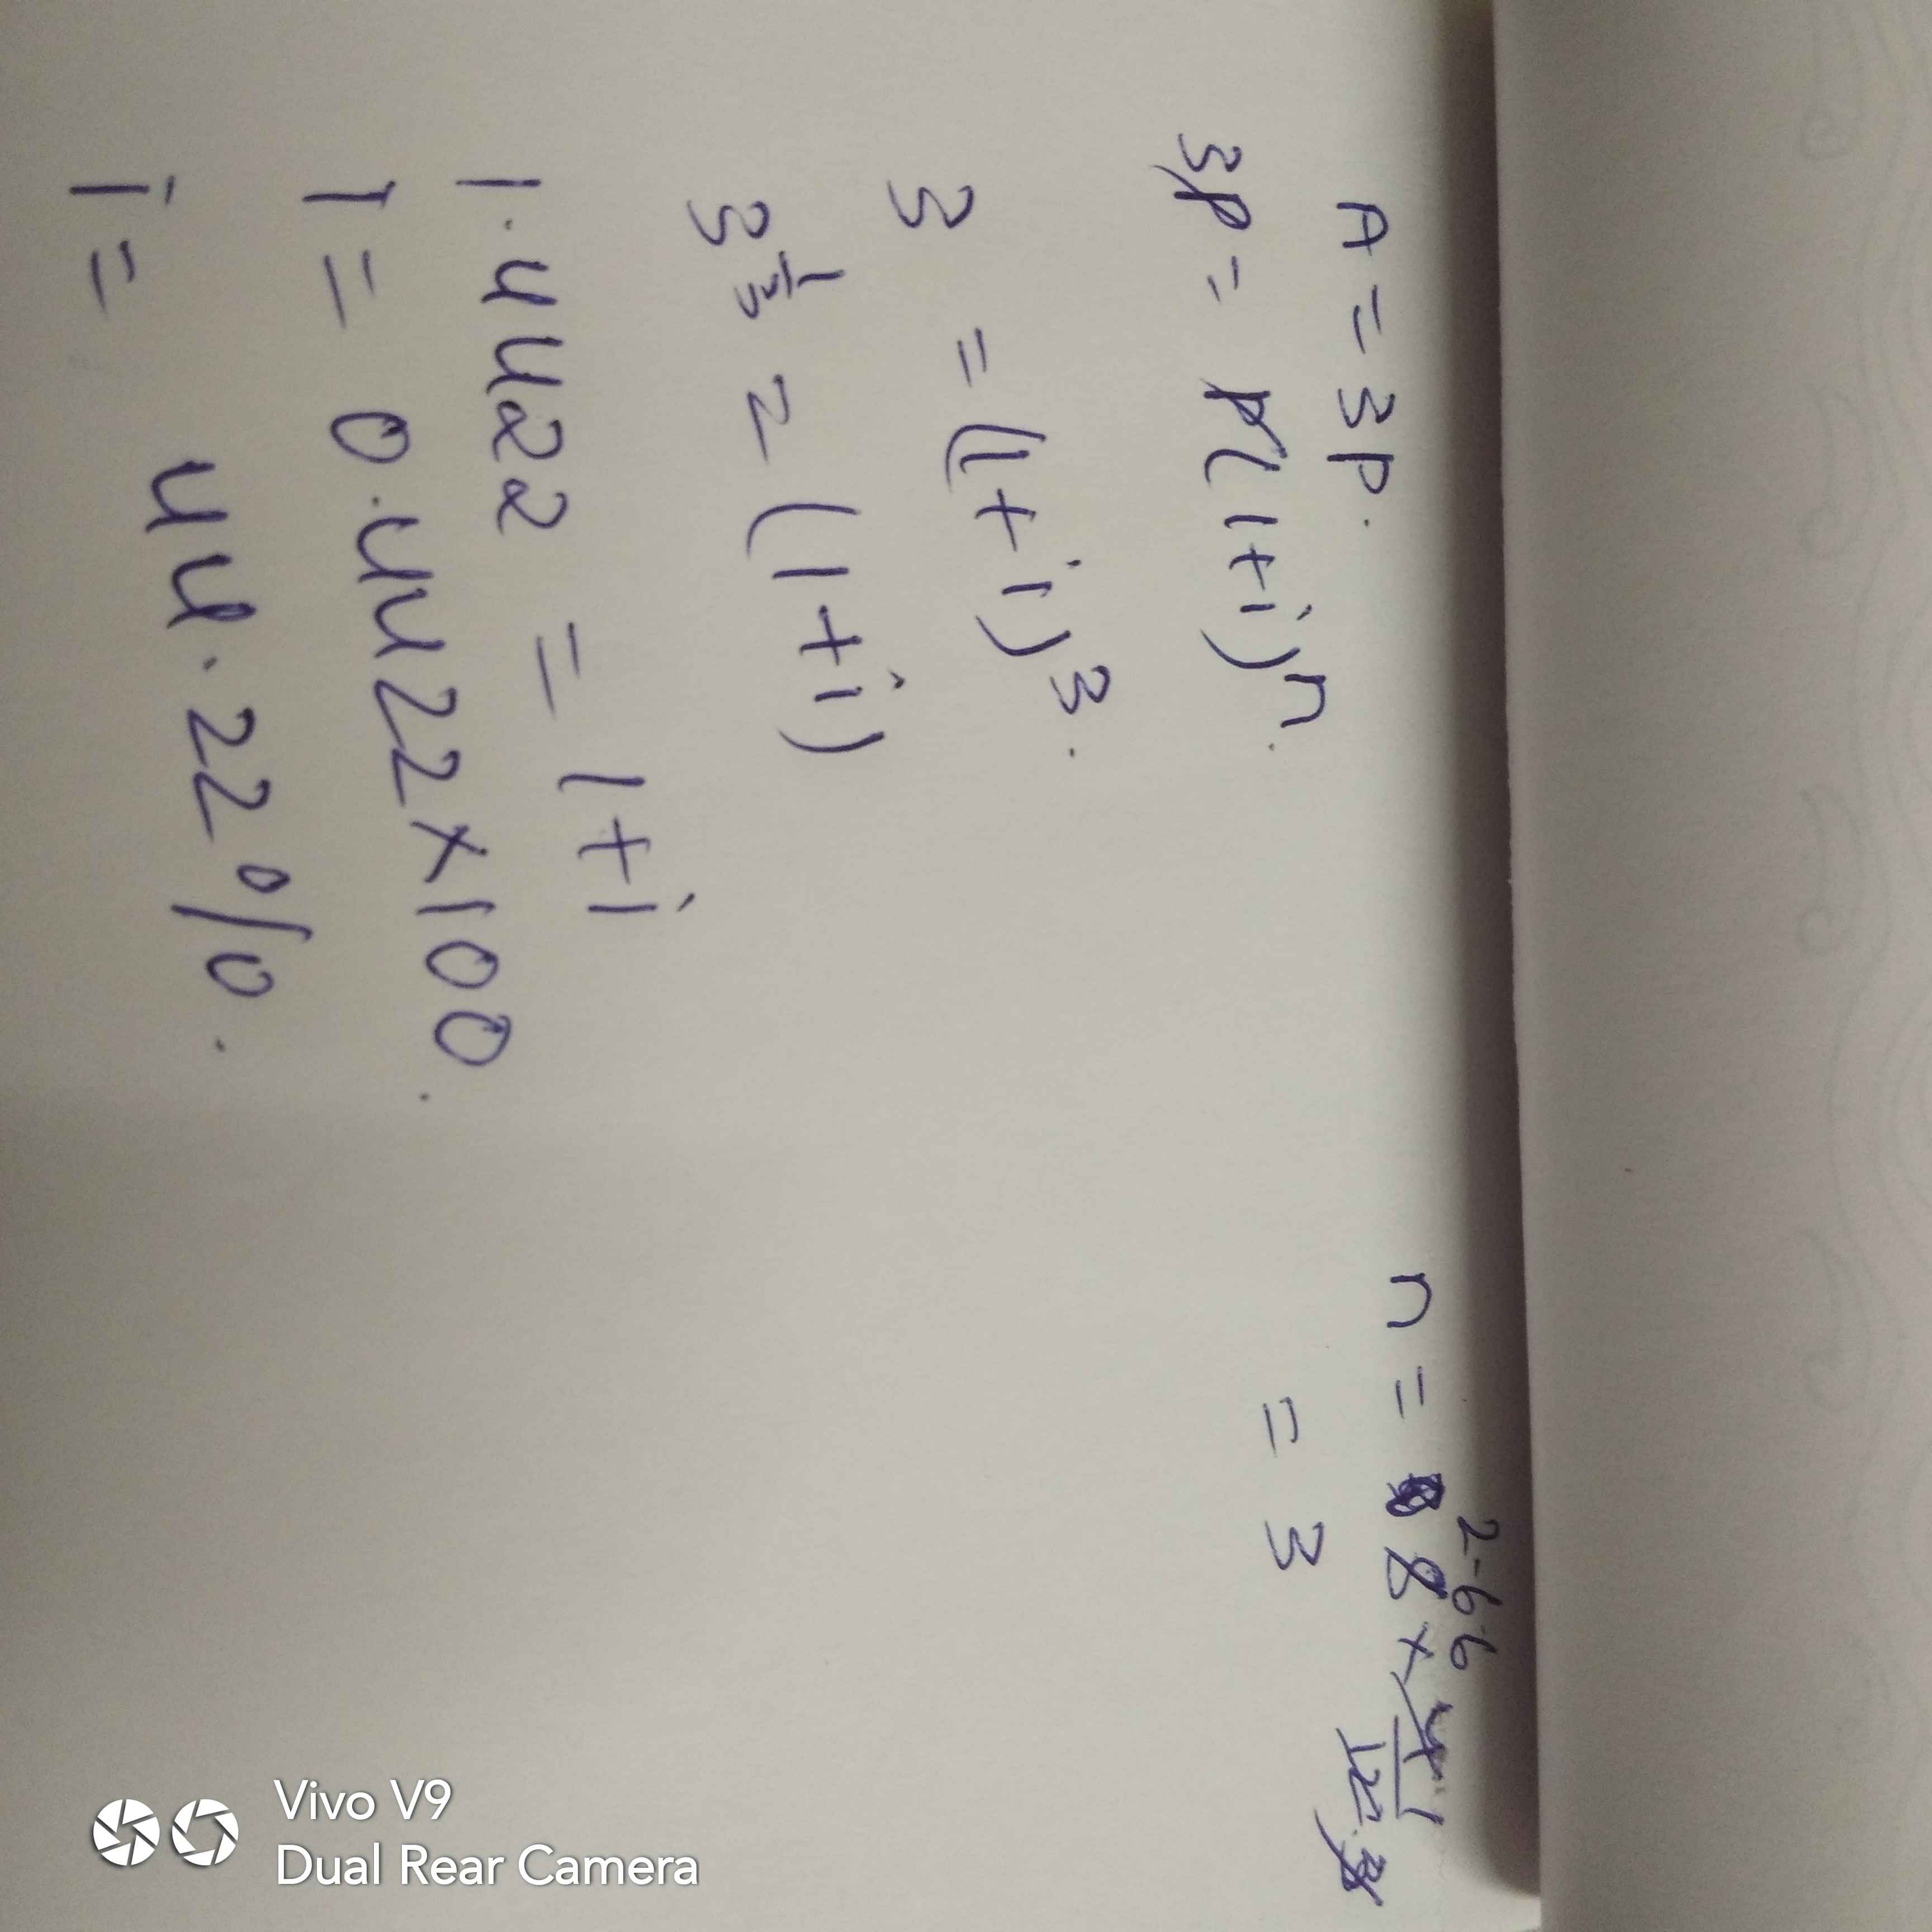 A = 3P.
3P = P(1+i)ⁿ.
3 = (1+i)³.
3^1/3 = (1+i)
1.4422 = 1+i
1 = 0.4422×100.
i = 44.22%.
n = 8 × 4/12
2-66
= 3
Vivo V9
Dual Rear Camera